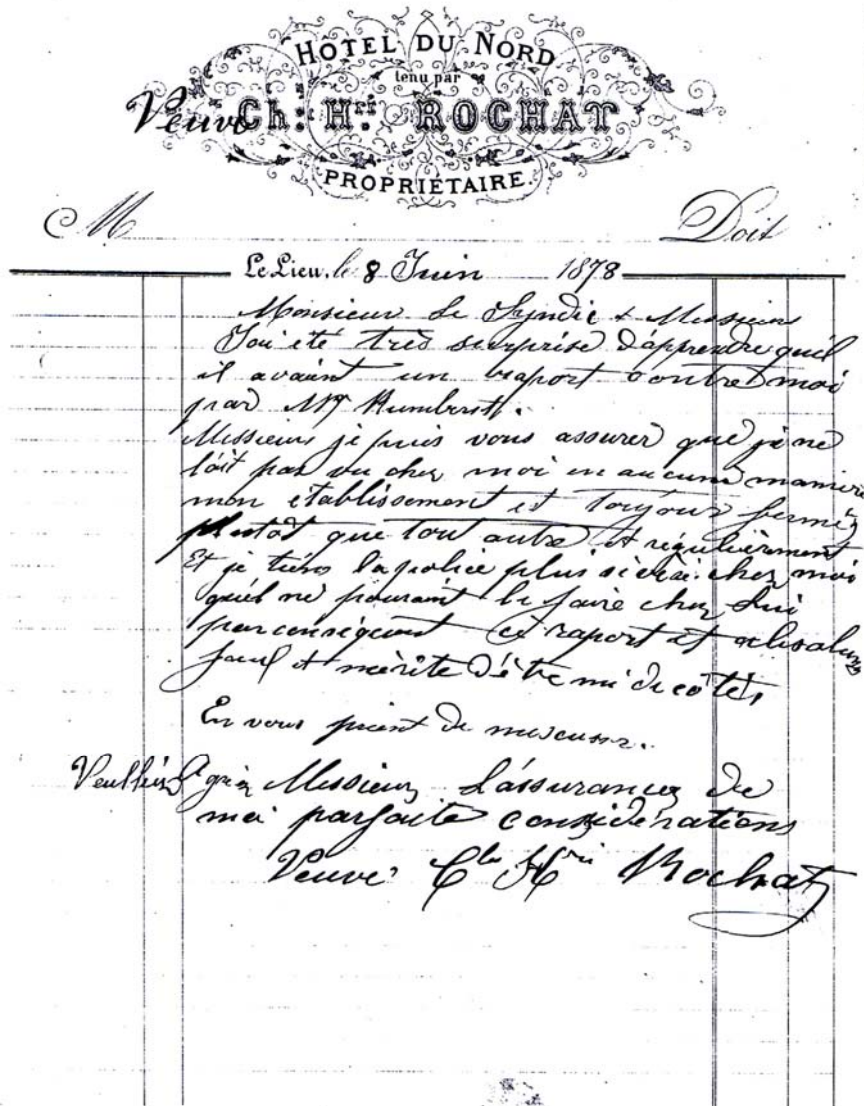 HÔTEL DU NORD
tenu par
Veuve Ch: Hri ROCHAT
PROPRIÉTAIRE.
M Doit
Le Lieu, le 8 Juin 1878
Monsieur Le Syndic & Messieurs
J'ai été très surprise d'apprendre quil
il avaint un raport contre moi
par Mr Humbert.
Messieurs je puis vous assurer que je ne
l'ait pas vu chez moi en aucune manière
mon établissement et toujour fermés
plutôt que tout autre et régulièrement
Et je tiens la police plus sévère chez moi
quil ne pouraint le faire chez Lui
par conséquent ce raport et
faux et mérite d'être mi de côtés,
En vous prient de mescuser.
Veulliez agréer Messieurs L'assurances de
ma parfaite considérations
Veuve Cles Hri Rochat